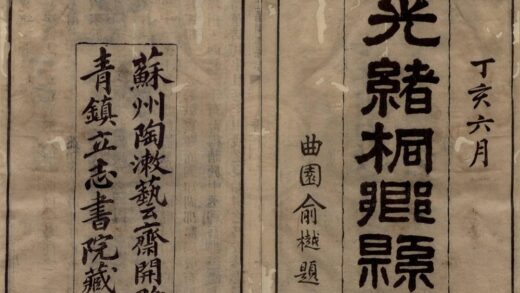 丁亥六月
光緒桐鄉縣
曲園俞樾題
蘇州陶漱藝齋開
青鎮立志書院藏